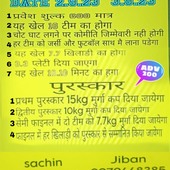 DATE 2.9.23 3.9.23
1 प्रवेश शुल्क 800 मात्र
2 यह खेल 16 टीम का होगा
3 चोट घाट लगने पर कोमीति जिम्मेवारी नही होगी
4 हर टीम को जर्सी और फुटबॉल साथ मै लाना पडेगा
5 यह खेल 7.3 खिलाडी का होगा
6 3.3 प्लेटी दिया जाएगा
7 यह खेल मिनट का होगा
ADV
200
पुरस्कार
1 प्रथम पुरस्कार 15kg मुर्गा कंप दिया जायेगा
2 द्वितीय पुरस्कार 10kg मुर्गा कंप दिया जायेगा
3 सेमी फाइनल में दो टीम को 7.7kg मुर्गा दिया जायेगा
4 फाइनल में हर खिलाडी को पुरस्कार से सम्मानित किया जायेगा
sachin
Jiban